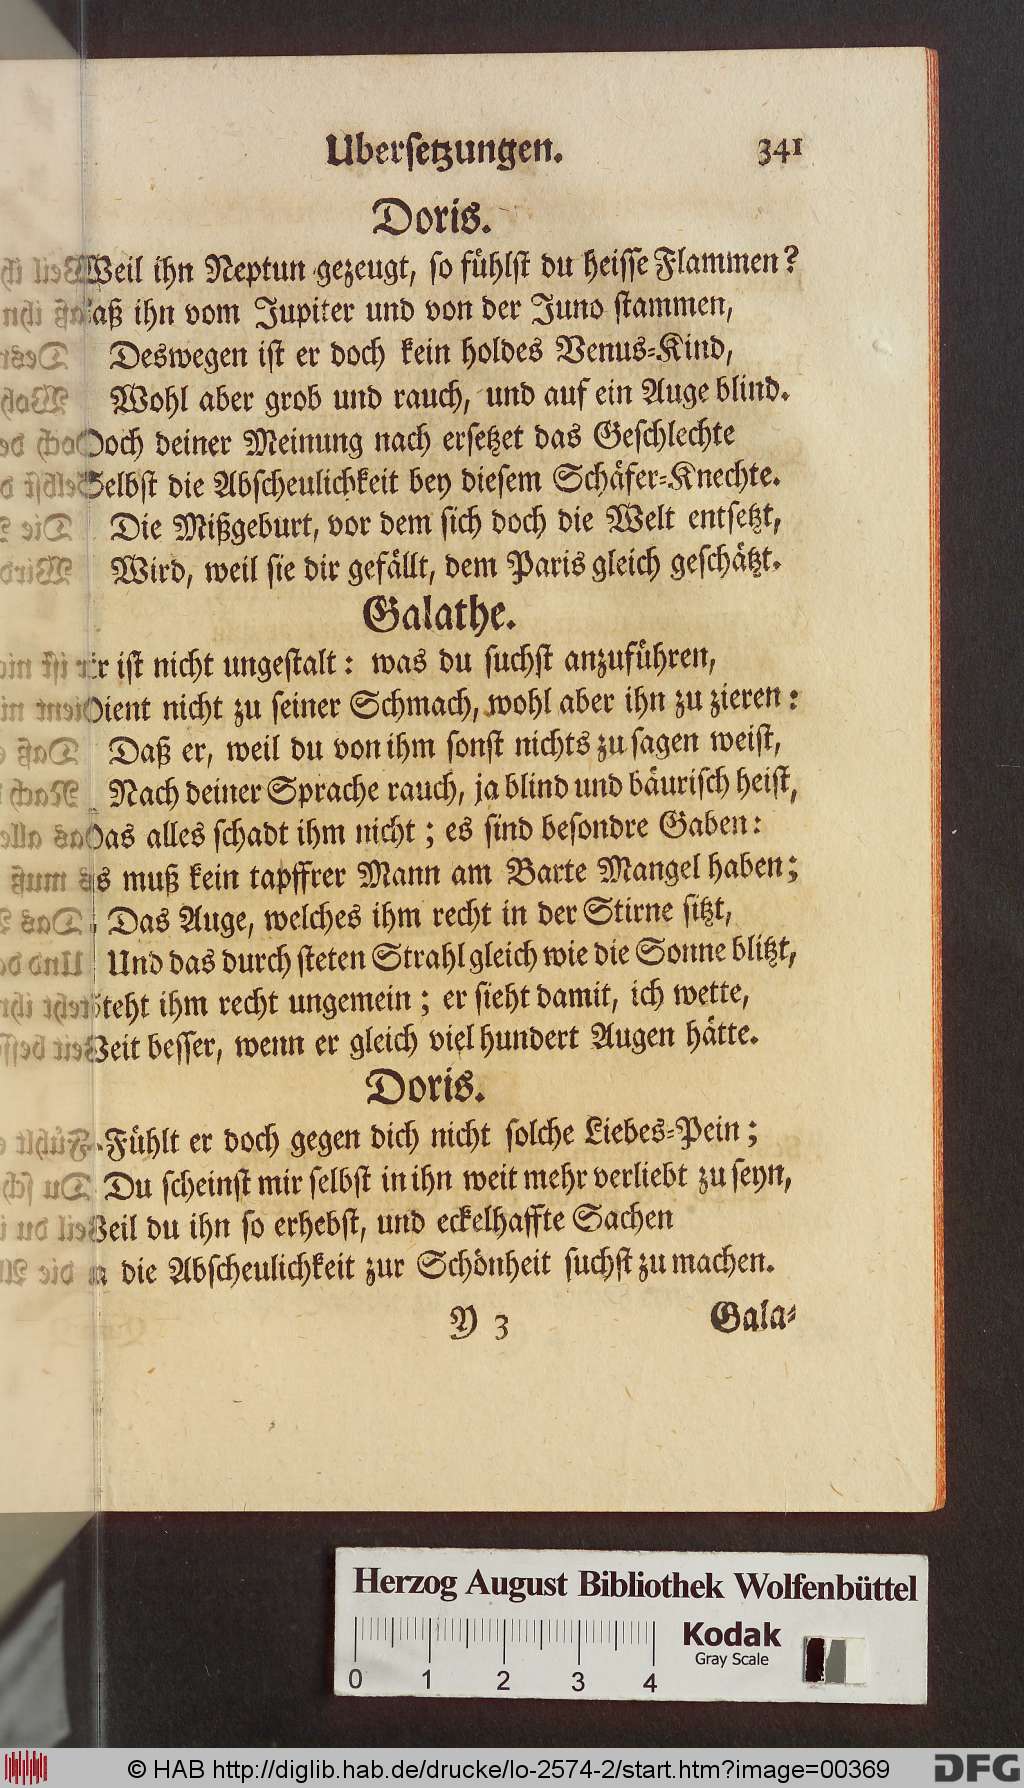 Ubersetzungen. 341
Doris.
Weil ihn Neptun gezeugt, so fühlst du heisse Flammen?
aß ihn vom Jupiter und von der Juno stammen,
Deswegen ist er doch kein holdes Venus-Kind,
Wohl aber grob und rauch, und auf ein Auge blind.
Doch deiner Meinung nach ersetzet das Geschlechte
Selbst die Abscheulichkeit bey diesem Schäfer-Knechte.
Die Mißgeburt, vor dem sich doch die Welt entsetzt,
Wird, weil sie dir gefällt, dem Paris gleich geschätzt.
Galathe.
Er ist nicht ungestalt: was du suchst anzuführen,
Dient nicht zu seiner Schmach, wohl aber ihn zu zieren:
Daß er, weil du von ihm sonst nichts zu sagen weist,
Nach deiner Sprache rauch, ja blind und bäurisch heist,
Das alles schadt ihm nicht; es sind besondre Gaben:
s muß kein tapffrer Mann am Barte Mangel haben;
Das Auge, welches ihm recht in der Stirne sitzt,
Und das durch steten Strahl gleich wie die Sonne blitzt,
Steht ihm recht ungemein; er sieht damit, ich wette,
Weit besser, wenn er gleich viel hundert Augen hätte.
Doris.
Fühlt er doch gegen dich nicht solche Liebes-Pein;
Du scheinst mir selbst in ihn weit mehr verliebt zu seyn,
Weil du ihn so erhebst, und eckelhaffte Sachen
a die Abscheulichkeit zur Schönheit suchst zu machen.
Y 3 Gala-
Herzog August Bibliothek Wolfenbüttel
Kodak
Gray Scale
0 1 2 3 4
© HAB http://diglib.hab.de/drucke/lo-2574-2/start.htm?image=00369
DFG